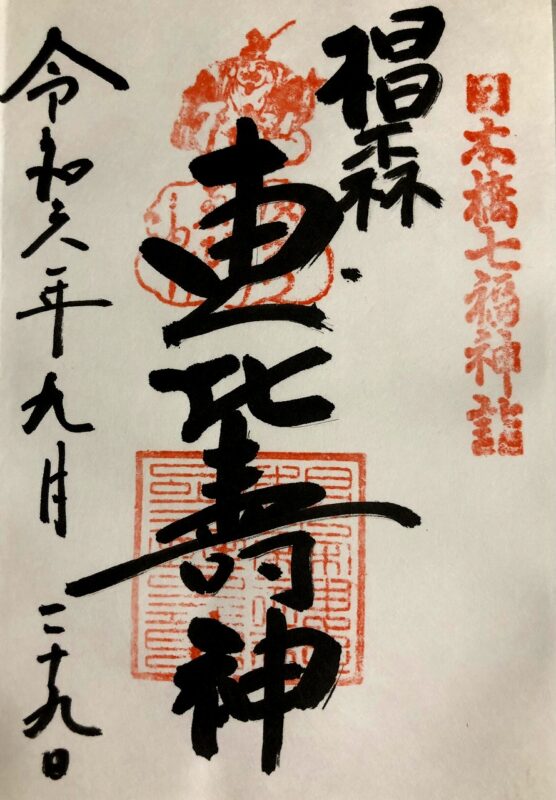 日本橋七福神詣
椙森
恵比壽神
令和六年九月二十九日